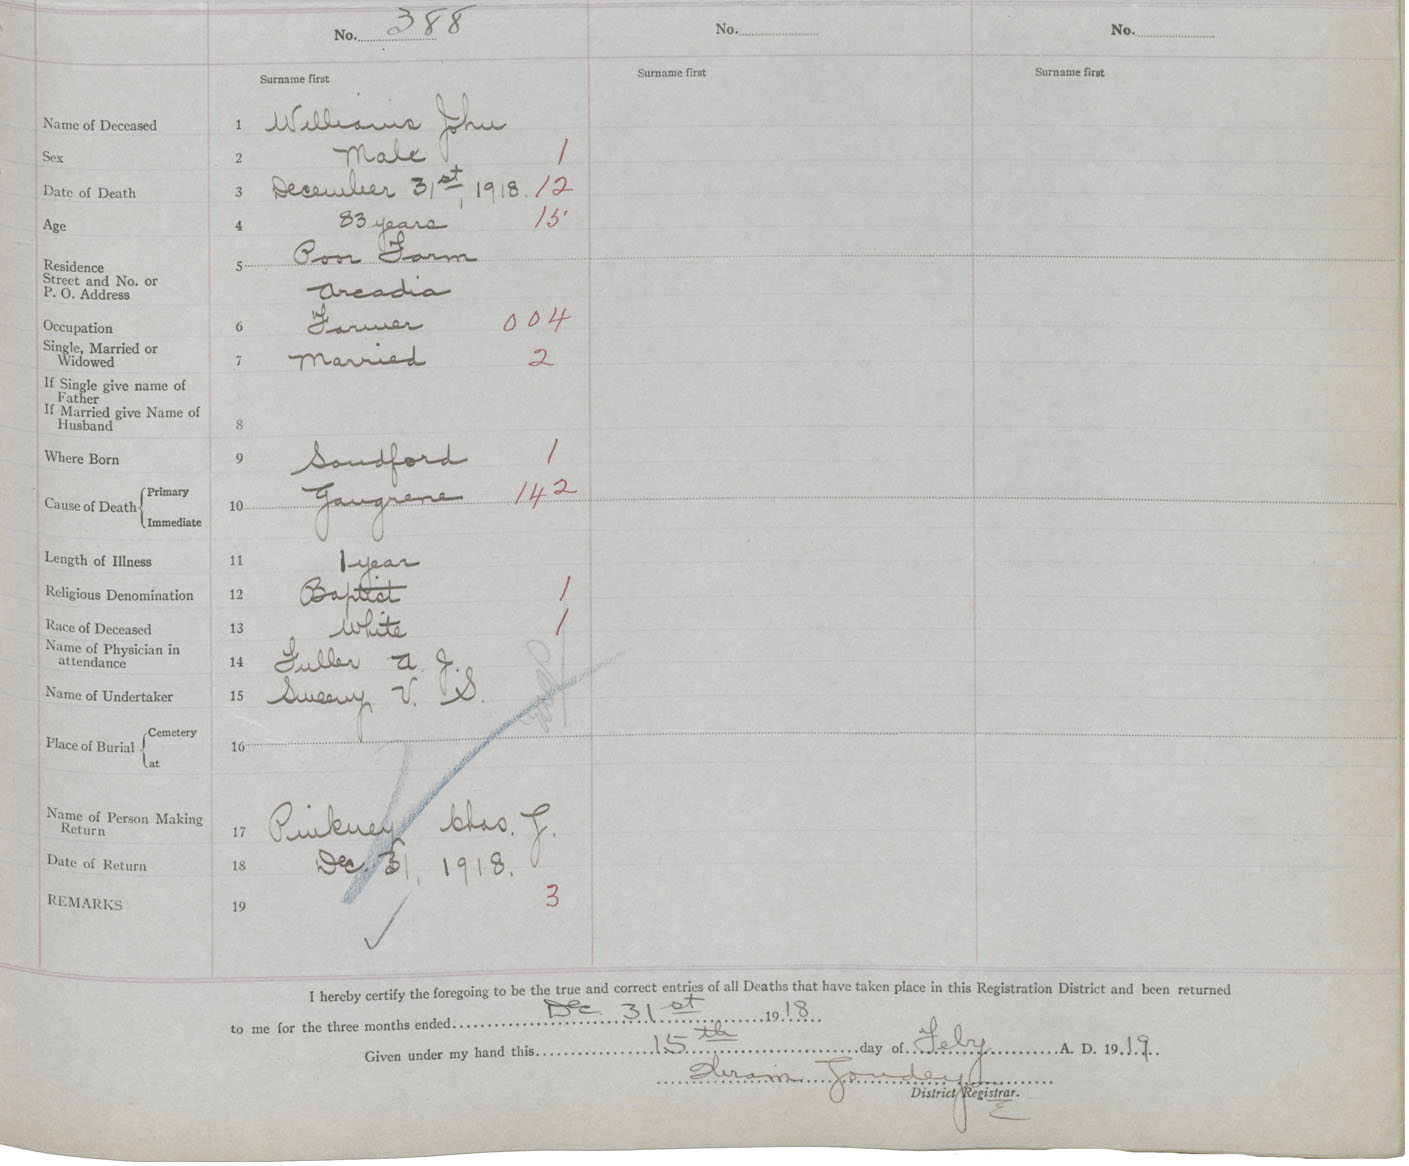 No. 388
No.
No.
Surname first
Surname first
Surname first
Name of Deceased 1 Williams John
Sex 2 Male 1
Date of Death 3 December 31st, 1918. 12
Age 4 83 years 15
Residence
Street and No. or
P. O. Address
5 Poor Farm
Arcadia
Occupation 6 Farmer 004
Single, Married or
Widowed
7 Married 2
If Single give name of
Father
If Married give Name of
Husband
8
Where Born 9 Sandford 1
Cause of Death Primary
Immediate
10 Gangrene 142
Length of Illness 11 1 year
Religious Denomination 12 Baptist 1
Race of Deceased 13 White 1
Name of Physician in
attendance
14 Fuller A. J.
Name of Undertaker 15 Sweeny V. S.
Place of Burial Cemetery
at
16
Name of Person Making
Return
17 Pinkney Chas. F.
Date of Return 18 Dec. 31, 1918.
REMARKS 19 3
I hereby certify the foregoing to be the true and correct entries of all Deaths that have taken place in this Registration District and been returned
to me for the three months ended Dec. 31st 1918
Given under my hand this 15th day of Feby A. D. 1919.
Hiram Goudey
District Registrar.